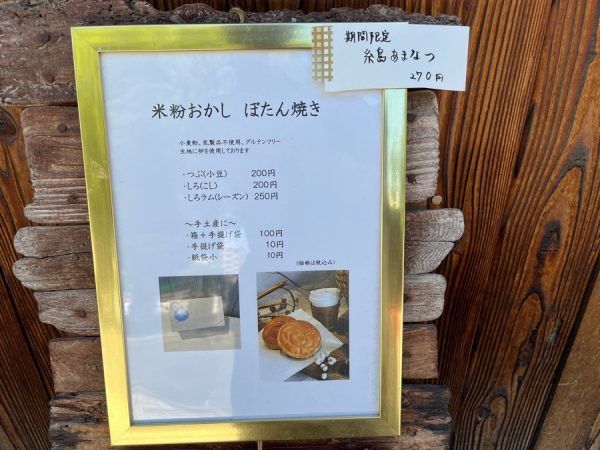 期間限定
糸島あまなつ
270円
米粉おかし ぼたん焼き
小麦粉、乳製品不使用、グルテンフリー
生地に卵を使用しております
・つぶ(小豆) 200円
・しろ(こし) 200円
・しろラム(レーズン) 250円
～手土産に～
・箱＋手提げ袋 100円
・手提げ袋 10円
・紙袋小 10円
(価格は税込み)